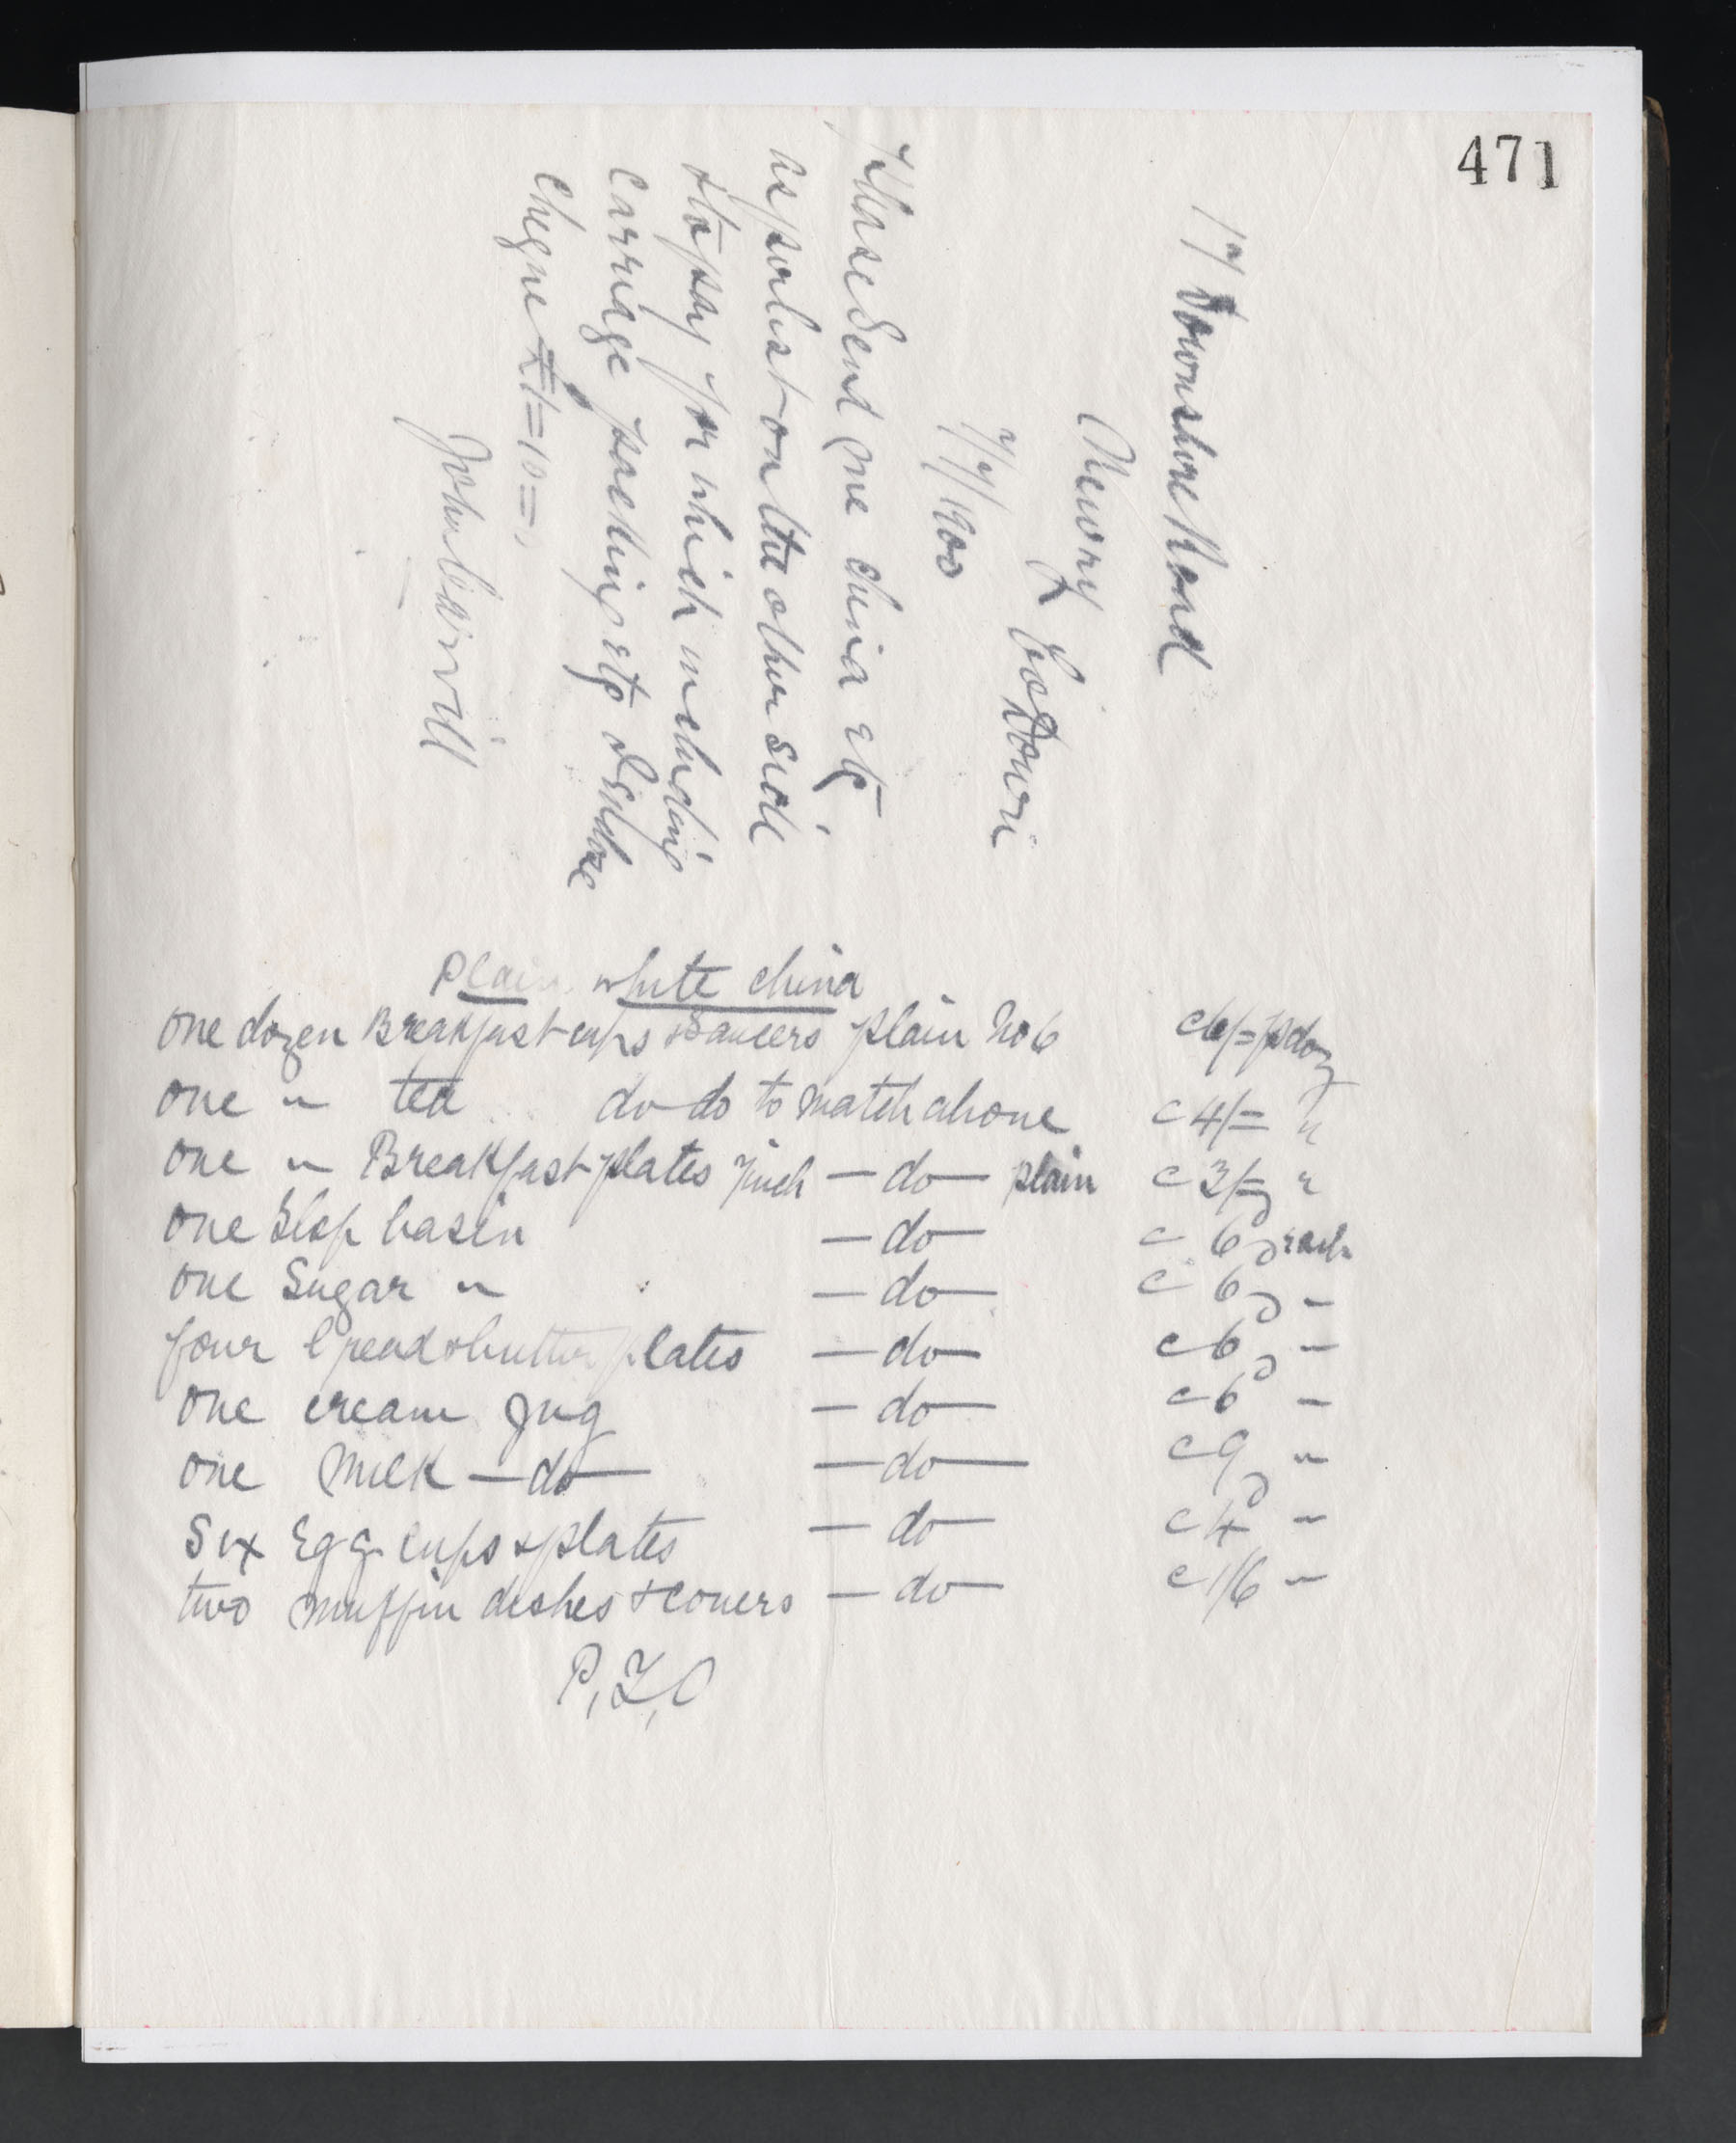 471
17 Downshire Road
Newry
Co Down
7/7/1900
Please Send me china etc
as per list on the other side
& to pay for which including
carriage packing etc I enclose
cheque £1=10=
John Carvill
Plain white china
one dozen Breakfast cups & Saucers plain No 6 c 6/= p doz
one " tea do do to match above c 4/= "
one " Breakfast plates 7 inch — do — plain c 3/= "
one Slop basin — do — c 6d each
one Sugar " — do — c 6d "
four bread & butter plates — do — c 6d "
one cream Jug — do — c 6 "
one Milk — do — — do — c 9d "
Six Egg cups & plates — do — c 4 "
two muffin dishes & covers — do — c 1/6 "
P,T,O